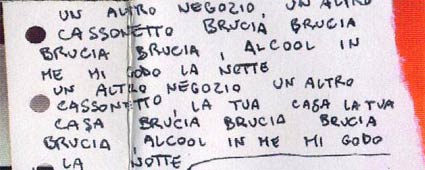 UN ALTRO NEGOZIO, UN ALTRO
CASSONETTO BRUCIA BRUCIA
BRUCIA BRUCIA, ALCOOL IN
ME MI GODO LA NOTTE
UN ALTRO NEGOZIO UN ALTRO
CASSONETTO, LA TUA CASA LA TUA
CASA BRUCIA BRUCIA BRUCIA
BRUCIA, ALCOOL IN ME MI GODO
LA NOTTE